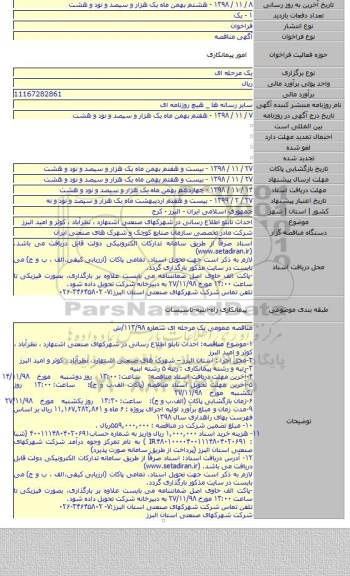 تاریخ آخرین به روز رسانی ۸ / ۱۱ / ۱۳۹۸ - هشتم بهمن ماه یک هزار و سیصد و نود و هشت
تعداد دفعات بازدید ۱ - یک
نوع انتشار فراخوان
نوع فراخوان آگهی مناقصه
حوزه فعالیت فراخوان امور پیمانکاری
نوع برگزاری یک مرحله ای
واحد پولی برآورد مالی ریال
برآورد مالی 11167282861
نام روزنامه منتشر کننده آگهی سایر رسانه ها _ هیچ روزنامه ای
تاریخ درج آگهی در روزنامه ۷ / ۱۱ / ۱۳۹۸ - هفتم بهمن ماه یک هزار و سیصد و نود و هشت
بین المللی است
احتمال تمدید مهلت دارد
لغو شده
تجدید شده
تاریخ بازگشایی پاکات ۲۷ / ۱۱ / ۱۳۹۸ - بیست و هفتم بهمن ماه یک هزار و سیصد و نود و هشت
مهلت ارسال پیشنهاد ۲۷ / ۱۱ / ۱۳۹۸ - بیست و هفتم بهمن ماه یک هزار و سیصد و نود و هشت
مهلت دریافت اسناد ۱۴ / ۱۱ / ۱۳۹۸ - چهاردهم بهمن ماه یک هزار و سیصد و نود و هشت
تاریخ اعتبار پیشنهاد ۲۷ / ۲ / ۱۳۹۹ - بیست و هفتم اردیبهشت ماه یک هزار و سیصد و نود و نه
کشور | استان | شهر جمهوری اسلامی ایران - البرز - کرج
موضوع احداث تابلو اطلاع رسانی در شهرکهای صنعتی اشتهارد ، نظرآباد ، کوثر و امید البرز
دستگاه مناقصه گزار شرکت مادر تخصصی سازمان صنایع کوچک و شهرک های صنعتی ایران
محل دریافت اسناد اسناد صرفاً از طریق سامانه تدارکات الکترونیکی دولت قابل دریافت می باشد.
(www.setadiran.ir)
لازم به ذکر است جهت تحویل اسناد، تمامی پاکات (ارزیابی کیفی،الف ، ب و ج) می
بایست در سایت مذکور بارگذاری گردد.
-پاکت الف حاوی اصل ضمانتنامه می بایست علاوه بر بارگذاری، بصورت فیزیکی تا
ساعت ۱۳:۰۰ مورخ ۲۷/۱۱/۹۸ به دبیرخانه شرکت تحویل داده شود.
تلفن تماس شرکت شهرکهای صنعتی استان البرز:۷-۳۴۶۴۵۸۰۲-۰۲۶
طبقه بندی موضوعی پیمانکاری راه-ابنیه-تاسیسات
توضیحات
مناقصه عمومی یک مرحله ای شماره ۱۱۳/۹۸/ش
۱-موضوع مناقصه: احداث تابلو اطلاع رسانی در شهرکهای صنعتی اشتهارد ، نظرآباد ،
کوثر و امید البرز
۲-محل اجرا: استان البرز – شهرک های صنعتی اشتهارد، نظرآباد ، کوثر و امید البرز
۳-رتبه و رشته پیمانکاری : رتبه ۵ رشته ابنیه
۴-آخرین مهلت دریافت اسناد مناقصه: ساعت ۱۳:۰۰ روز دوشنبه مورخ ۱۴/۱۱/۹۸
۵-آخرین مهلت تحویل اسناد مناقصه (پاکات الف،ب و ج): ساعت ۱۳:۰۰ روز
یکشنبه مورخ ۲۷/۱۱/۹۸
۶-زمان بازگشایی پاکات (الف،ب و ج): ساعت ۱۳:۰۰ روز یکشنبه مورخ ۲۷/۱۱/۹۸
۹-مدت زمان و مبلغ برآورد اولیه اجرای پروژه : ۶ ماه و ۱۱,۱۶۷,۲۸۲,۸۶۱ ریال بر اساس
فهرست بهای راهداری سال ۱۳۹۸
۱۰- مبلغ تضمین شرکت در مناقصه : ۵۵۹,۰۰۰,۰۰۰ریال
صنعتی استان البرز (پرداخت از طریق سامانه صورت پذیرد)
۱۲- آدرس دریافت اسناد: اسناد صرفاً از طریق سامانه تدارکات الکترونیکی دولت قابل
دریافت می باشد. (www.setadiran.ir)
لازم به ذکر است جهت تحویل اسناد، تمامی پاکات (ارزیابی کیفی،الف ، ب و ج) می
بایست در سایت مذکور بارگذاری گردد.
-پاکت الف حاوی اصل ضمانتنامه می بایست علاوه بر بارگذاری، بصورت فیزیکی تا
ساعت ۱۳:۰۰ مورخ ۲۷/۱۱/۹۸ به دبیرخانه شرکت تحویل داده شود.
تلفن تماس شرکت شهرکهای صنعتی استان البرز:۷-۳۴۶۴۵۸۰۲-۰۲۶
شرکت شهرکهای صنعتی استان البرز